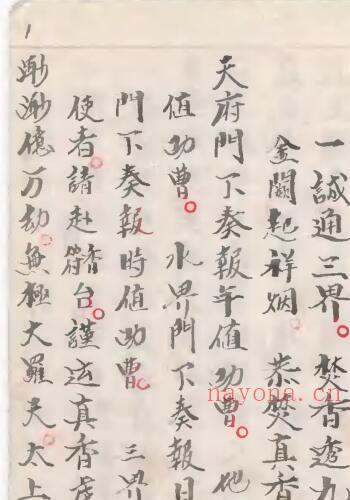 一誠通三界。焚香透九
金闕起祥烟 恭焚真香
天府門下奏報年值功曹。地
值功曹。水界門下奏報日
門下奏報時值功曹。三界
使者。請赴香台。謹运真香虔
渺渺億万劫。無極大羅天太上
1
nayona.cn